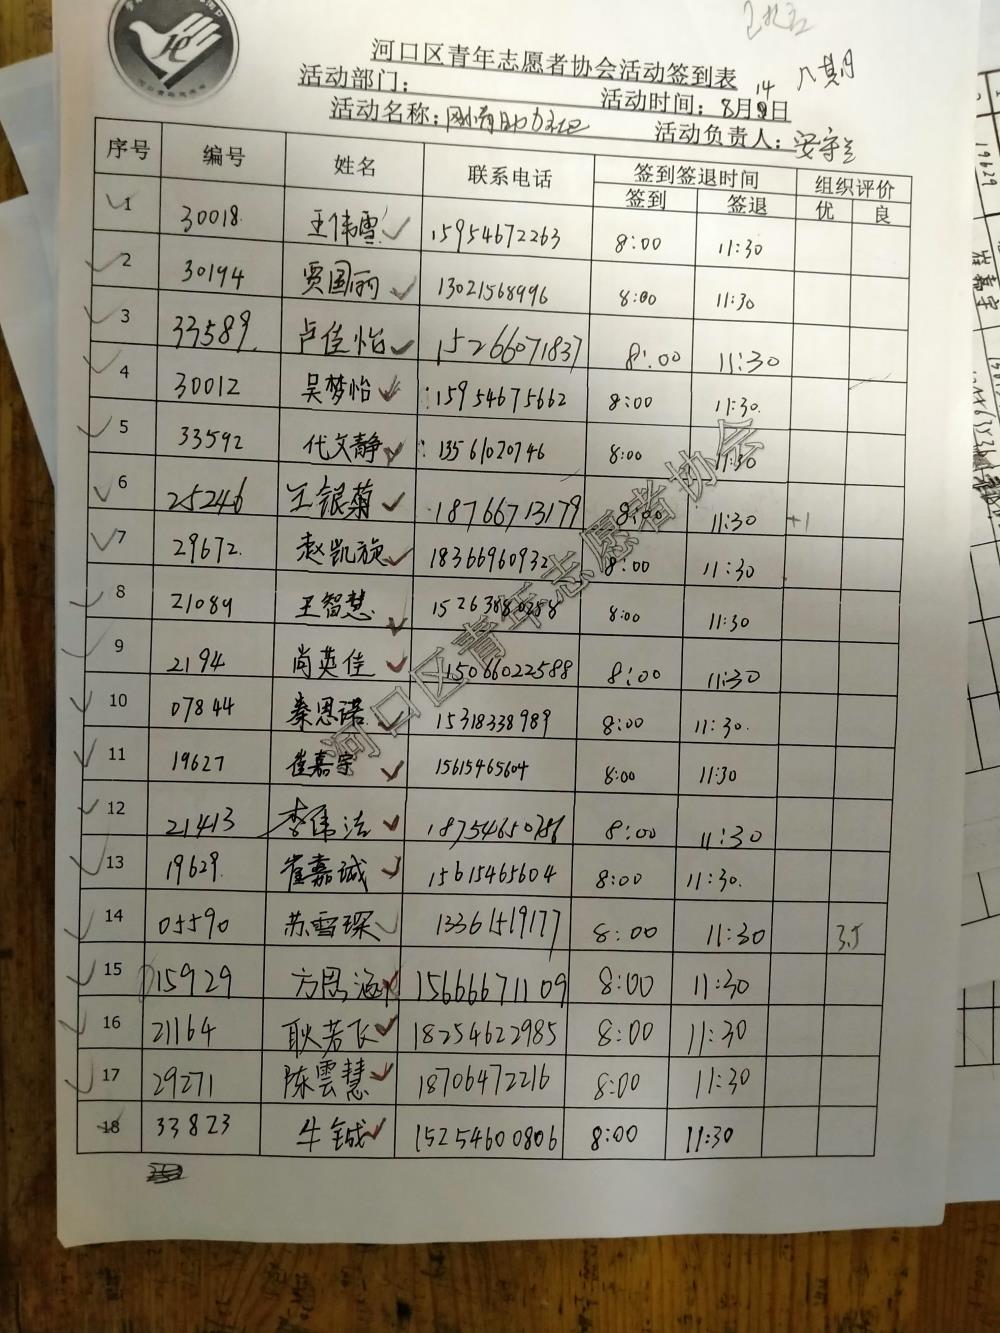 河口区青年志愿者协会活动签到表
活动部门: 活动时间: 8月14日 八其月
活动名称: 活动负责人:
序号 编号 姓名 联系电话 签到签退时间 组织评价
签到 签退 优 良
1 30018 王伟雪 15954672263 8:00 11:30
2 30194 贾国丽 13021568996 8:00 11:30
3 33589 卢佳怡 15266071837 8:00 11:30
4 30012 吴梦怡 15954675662 8:00 11:30
5 33592 代文静 13561020746 8:00 11:30
6 25246 王银菊 18766713179 8:00 11:30 +1
7 29672 赵凯旋 18366960932 8:00 11:30
8 21089 王智慧 15263880288 8:00 11:30
9 2194 尚英佳 15066022588 8:00 11:30
10 07844 秦恩诺 15318338989 8:00 11:30
11 19627 崔嘉宇 15615465604 8:00 11:30
12 21413 李伟洁 18754650786 8:00 11:30
13 19629 崔嘉诚 15615465604 8:00 11:30
14 05590 苏雪琛 13361519177 8:00 11:30 3.5
15 015929 方恩涵 15666671109 8:00 11:30
16 21164 耿若飞 18254622985 8:00 11:30
17 29271 陈雲慧 18706472216 8:00 11:30
18 33823 牛铖 15254600806 8:00 11:30
河口区青年志愿者协会
19629
崔嘉宇